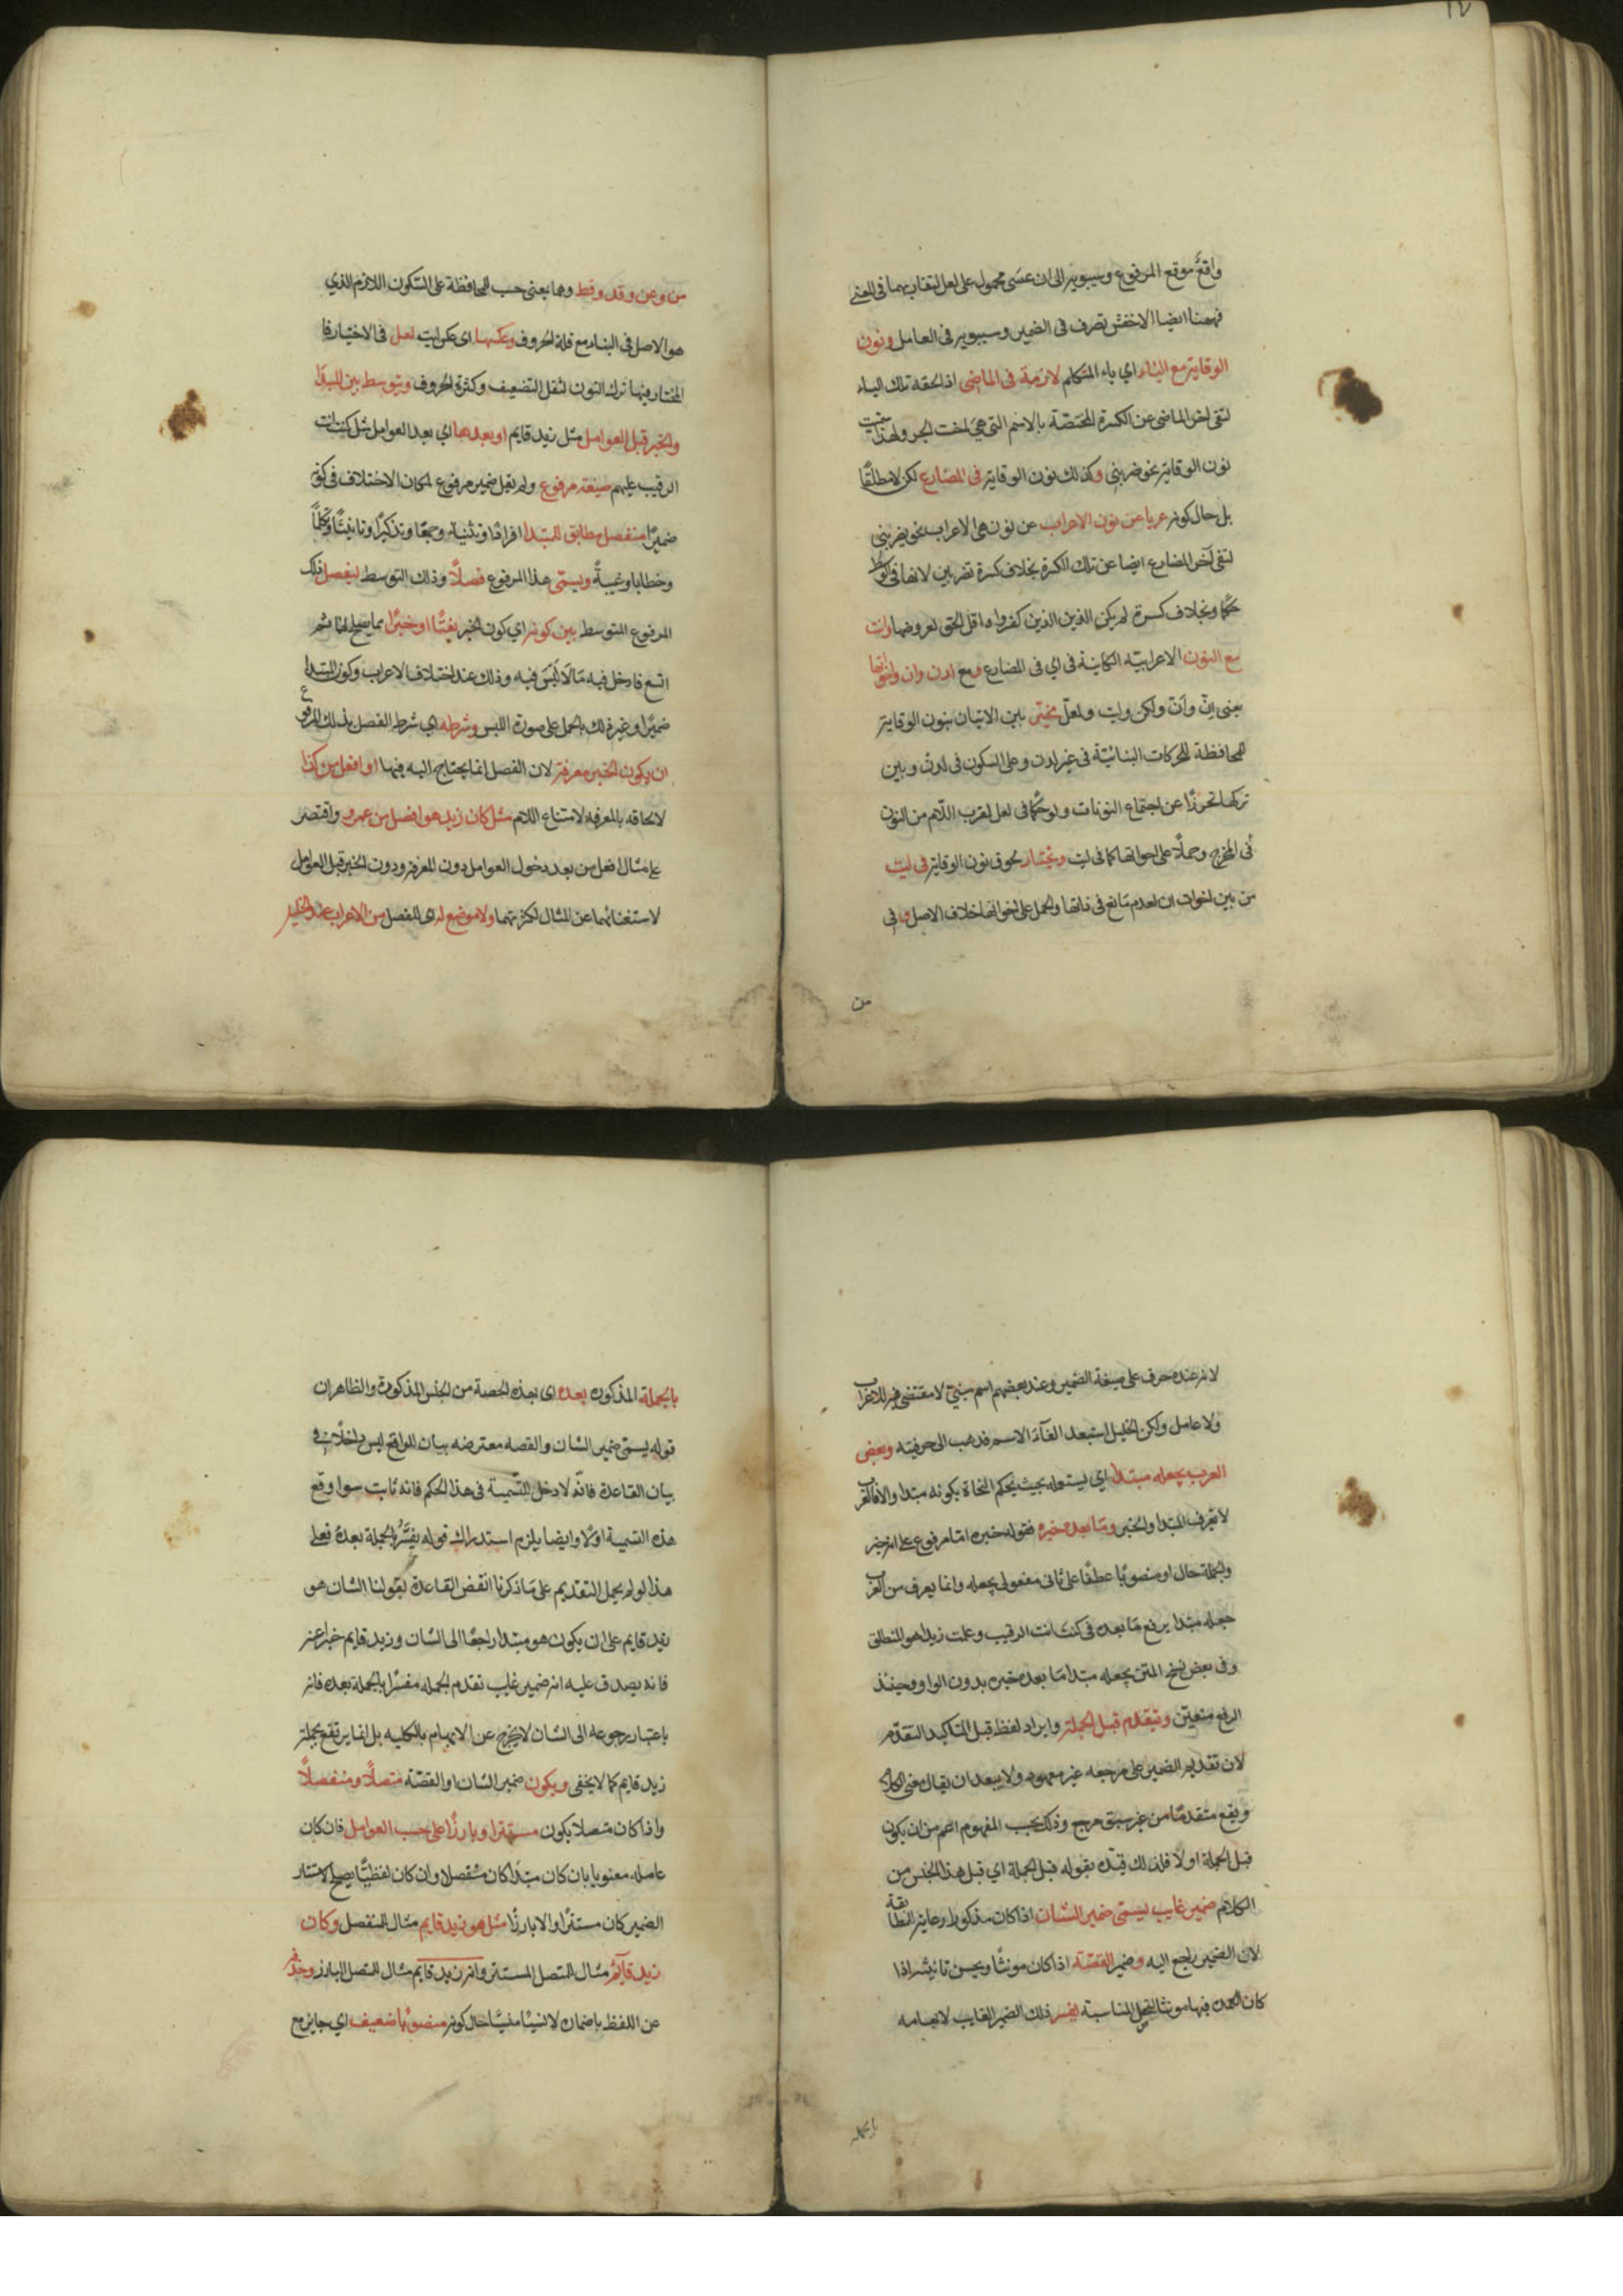 واقعٌ موقع المرفوع وسيبويه الى ان عسى محمول على لعل لتقاربهما في المعنى
فههنا ايضا الاخفش تصرف في الضمير وسيبويه في العامل ونون
الوقاية مع الياء اي ياء المتكلم لازمة في الماضي اذا لحقه تلك الياء
لتقي اخر الماضي عن الكسرة المختصة بالاسم التي هي اخت الجر ولهذا سميت
نون الوقاية نحو ضربني وكذلك نون الوقاية في المضارع لكن لا مطلقًا
بل حال كونه عريا عن نون الاعراب عن نون هي الاعراب نحو يضربني
لتقي آخر المضارع ايضا عن تلك الكسرة بخلاف كسرة تضربين لانها في الوسط
حكمًا وبخلاف كسرة لم يكن الذين الذين كفروا وقل الحق لعروضها وانت
مع النون الاعرابية الكاينة في اي في المضارع ومع لدن وان واخواتها
يعني انّ وأنّ ولكن وليت ولعل مخيّر بين الاتيان بنون الوقاية
للمحافظة للحركات البنائيّة في غير لدن وعلى السكون في لدن وبين
تركها تحرزًا عن اجتماع النونات ولو حكمًا في لعل لقرب اللام من النون
في المخرج وحملًا على اخواتها كما في ليت ويختار لحوق نون الوقاية في ليت
من بين اخوات ان لعدم مانع في ذاتها والحمل على اخواتها خلاف الاصل وفي
من
من وعن وقد وقط وهما بمعنى حسب للمحافظة على السكون اللازم الذي
هو الاصل في البناء مع قلة الحروف وعكسها اي عكس ليت لعل في الاختيار فا
المختار فيها ترك النون لثقل التضعيف وكثرة الحروف ويتوسط بين المبتدأ
والخبر قبل العوامل مثل زيد قايم او بعدها اي بعد العوامل مثل كنت انت
الرقيب عليهم صيغة مرفوع ولم يقل ضمير مرفوع لمكان الاختلاف في كونه
ضميرًا منفصل مطابق للمبتدا افرادًا وتثنية وجمعًا وتذكيرًا وتانيثًا وتكلمًا
وخطابا وغيبةً ويسمّى هذا المرفوع فصلًا وذلك التوسط ليفصل ذلك
المرفوع المتوسط بين كونه اي كون الخبر نعتًا او خبرًا مما يصلح لهما ثم
اتسع فادخل فيه مَا لَا لَبْسَ فيه وذلك عند اختلاف الاعراب وكون المبتدا
ضميرًا وغير ذلك بالحمل على صورة اللبس وشرطه اي شرط الفصل بذلك المرفوع
ان يكون الخبر معرفة لان الفصل انما يحتاج اليه فيها او افعل من كذا
لالحاقه بالمعرفة لامتناع اللام مثل كان زيد هو افضل من عمرو واقتصر
على مثال افعل من بعد دخول العوامل دون المعرفة ودون الخبر قبل العوامل
لاستغنائهما عن المثال لكثرتهما ولا موضع له اي للفصل من الاعراب عند الخليل
لانه عنده حرف على صيغة الضمير وعند بعضهم اسم مبنيّ لا مقتضى فيه للاعراب
ولا عامل ولكن الخليل استبعد الغآء الاسم فذهب الى حرفيته وبعض
العرب يجعله مبتدأ اي يستعمله بحيث يحكم النحاة بكونه مبتدا والا فالعرب
لا تعرف المبتدا والخبر وما بعده خبره فقوله خبره اما مرفوع على انه خبر
والجملة حال او منصوبًا عطفًا على ثاني مفعولي يجعله وانما يعرف من العرب
جعله مبتدا برفع ما بعده في كنت انت الرقيب وعلمت زيدا هو المنطلق
وفي بعض نسخ المتن يجعله مبتدا ما بعده خبره بدون الواو وحينئذ
الرفع متعيّن ويتقدم قبل الجملة وايراد لفظ قبل لتاكيد التقدّم
لان تقديم الضمير على مرجعه غير معهود ولا يبعد ان يقال معنى الكلام
ويقع متقدمًا من غير سبق مرجع وذلك بحسب المفهوم اعم من ان يكون
قبل الجملة اولا فلذلك قيّده بقوله قبل الجملة اي قبل هذا الجنس من
الكلام ضمير غايب ليسمّى ضمير الشان اذا كان مذكورا رعاية للمطابقة
لان الضمير راجع اليه وضمير القصّة اذا كان مونثًا ويحسن تانيثه اذا
كان العمدة فيها مونثا لتحصل المناسبة يفسر ذلك الضمير الغايب لابهامه
بالجملة
بالجملة المذكورة بعده اى بعد هذه الحصة من الجنس المذكورة والظاهر ان
قوله يسمّى ضمير الشان والقصه معترضه بيان للواقع ليس داخلًا في
بيان القاعدة فانّه لا دخل للتسمية في هذا الحكم فانه ثابت سوا وقع
هذه التسمية اولا وايضا يلزم استدراك قوله يفسّر بالجملة بعده فعلى
هذا لو لم يحمل التقديم على ما ذكرنا انتقض القاعدة بقولنا الشان هو
زيد قايم على ان يكون هو مبتدا راجعًا الى الشان وزيد قايم خبرا عنه
فانه يصدق عليه انه ضمير غايب تقدم الجمله مفسّرا بالجملة بعده فانه
باعتبار رجوعه الى الشان لا يخرج عن الابهام بالكليه بل انما يرتفع بجملة
زيد قايم كما لا يخفى ويكون ضمير الشان او القصّة متصلًا ومنفصلًا
واذا كان متصلا يكون مستترا وبارزًا على حسب العوامل فان كان
عامله معنويا بان كان مبتدًا كان منفصلا وان كان لفظيًّا يصلح لاستتار
الضمير كان مستترًا والا بارزًا مثل هو زيد قايم مثال المنفصل وكان
زيد قآيم مثال المتصل المستتر وانه زيد قايم مثال المتصل البارز وحذفه
عن اللفظ باضمار لا نسيًا منسيًّا حال كونه منصوبًا ضعيف اي جايز مع